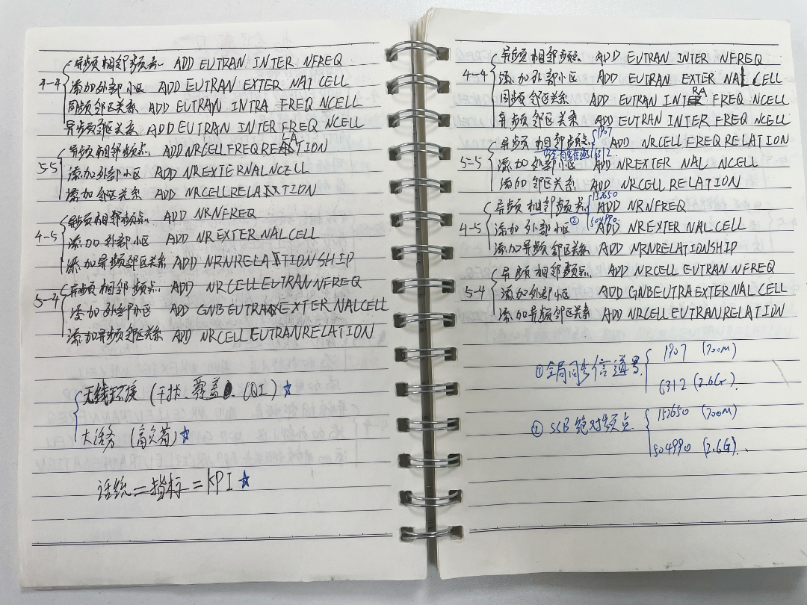 4-4 异频相邻频点 ADD EUTRAN INTER NFREQ
添加外部小区 ADD EUTRAN EXTER NAL CELL
同频邻区关系 ADD EUTRAN INTRA FREQ NCELL
异频邻区关系 ADD EUTRAN INTER FREQ NCELL
5-5 异频相邻频点 ADD NRCELL FREQ RELATION
添加外部小区 ADD NREXTERNALNCELL
添加邻区关系 ADD NRCELLRELATION
4-5 异频相邻频点 ADD NRNFREQ
添加外部小区 ADD NREXTERNALCELL
添加异频邻区关系 ADD NRNRELATIONSHIP
5-4 异频相邻频点 ADD NRCELLEUTRANNFREQ
添加外部小区 ADD GNBEUTRAEXTERNALCELL
添加异频邻区关系 ADD NRCELLEUTRANRELATION
无线环境 (干扰. 覆盖. CQI) ☆
大话务 (高负荷) ☆
话统=指标=KPI ☆
4-4 异频相邻频点 ADD EUTRAN INTER NFREQ
添加外部小区 ADD EUTRAN EXTER NAL CELL
同频邻区关系 ADD EUTRAN INTRA FREQ NCELL
异频邻区关系 ADD EUTRAN INTER FREQ NCELL
5-5 异频相邻频点 ADD NRCELL FREQ RELATION
添加外部小区 ADD NREXTER NAL NCELL
添加邻区关系 ADD NRCELL RELATION
4-5 异频相邻频点 152650 ADD NRNFREQ
添加外部小区 ② 504990 ADD NREXTERNALCELL
添加异频邻区关系 ADD NRNRELATIONSHIP
5-4 异频相邻频点 ADD NRCELL EUTRAN NFREQ
添加外部小区 ADD GNBEUTRAEXTERNALCELL
添加异频邻区关系 ADD NRCELL EUTRANRELATION
①全局同步信道号 1907 (700M)
6312 (2.6G).
② SSB绝对频点 152650 (700M)
504990 (2.6G).